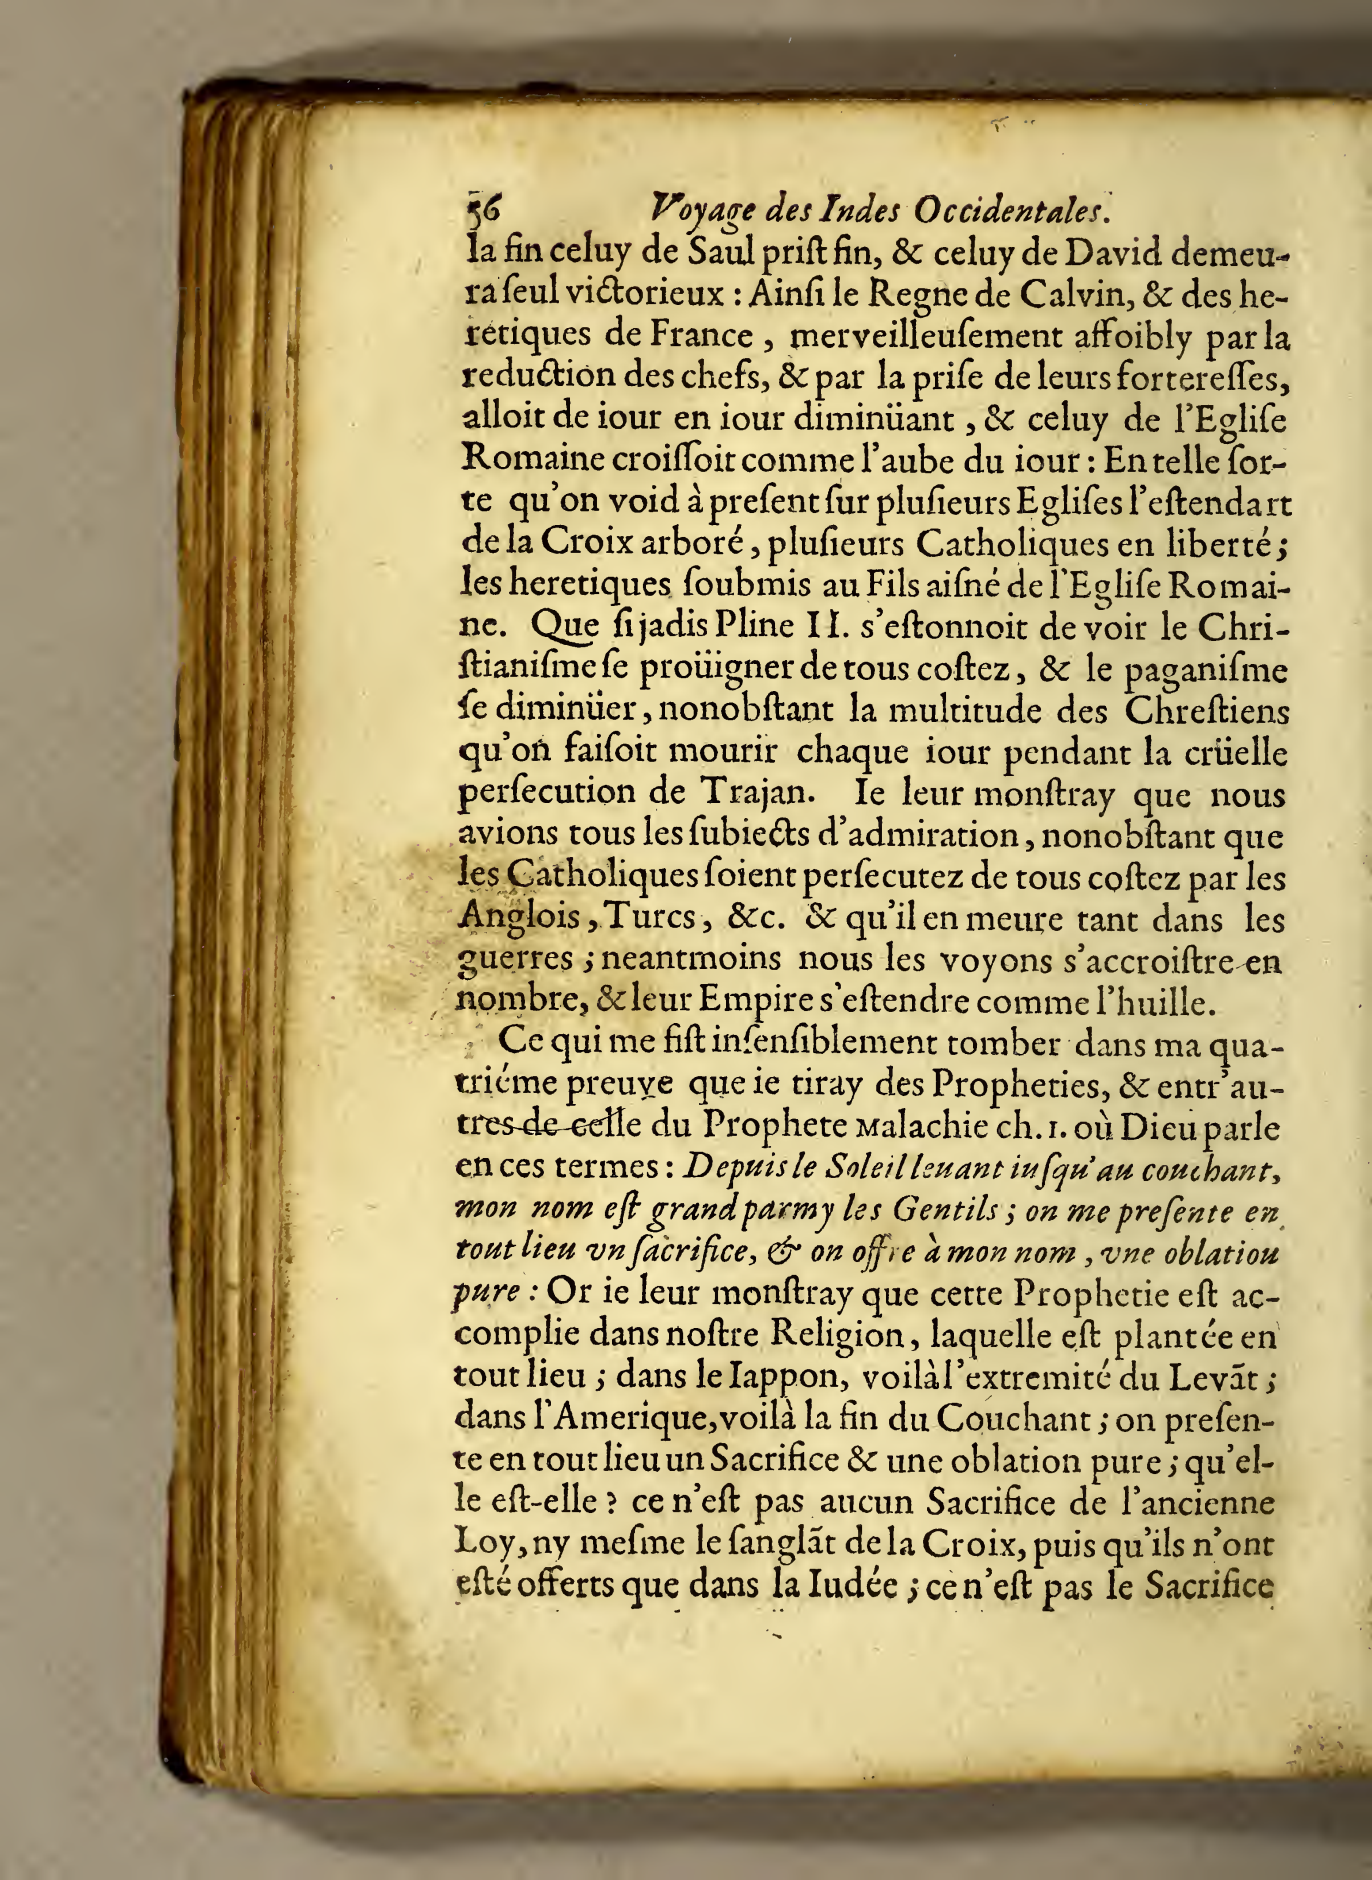 56 Voyage des Indes Occidentales.
la fin celuy de Saul priſt fin, & celuy de David demeu-
ra ſeul victorieux : Ainſi le Regne de Calvin, & des he-
retiques de France , merveilleuſement affoibly par la
reduction des chefs, & par la priſe de leurs fortereſſes,
alloit de iour en iour diminüant , & celuy de l'Egliſe
Romaine croiſſoit comme l'aube du iour : En telle ſor-
te qu'on void à preſent ſur pluſieurs Egliſes l'eſtendart
de la Croix arboré , pluſieurs Catholiques en liberté ;
les heretiques ſoubmis au Fils aiſné de l'Egliſe Romai-
ne. Que ſi jadis Pline II. s'eſtonnoit de voir le Chri-
ſtianiſme ſe proüigner de tous coſtez , & le paganiſme
ſe diminüer , nonobſtant la multitude des Chreſtiens
qu'on faiſoit mourir chaque iour pendant la crüelle
perſecution de Trajan. Ie leur monſtray que nous
avions tous les ſubiects d'admiration , nonobſtant que
les Catholiques ſoient perſecutez de tous coſtez par les
Anglois , Turcs , &c. & qu'il en meure tant dans les
guerres ; neantmoins nous les voyons s'accroiſtre en
nombre, & leur Empire s'eſtendre comme l'huille.
Ce qui me fiſt inſenſiblement tomber dans ma qua-
triéme preuve que ie tiray des Propheties, & entr'au-
tres de celle du Prophete Malachie ch. 1. où Dieu parle
en ces termes : Depuis le Soleil leuant iuſqu'au couchant,
mon nom eſt grand parmy les Gentils ; on me preſente en
tout lieu vn ſacrifice, & on offre à mon nom , vne oblatiou
pure : Or ie leur monſtray que cette Prophetie eſt ac-
complie dans noſtre Religion , laquelle eſt plantée en
tout lieu ; dans le Iappon, voilà l'extremité du Levãt ;
dans l'Amerique, voilà la fin du Couchant ; on preſen-
te en tout lieu un Sacrifice & une oblation pure ; qu'el-
le eſt-elle ? ce n'eſt pas aucun Sacrifice de l'ancienne
Loy, ny meſme le ſanglãt de la Croix, puis qu'ils n'ont
eſté offerts que dans la Iudée ; ce n'eſt pas le Sacrifice